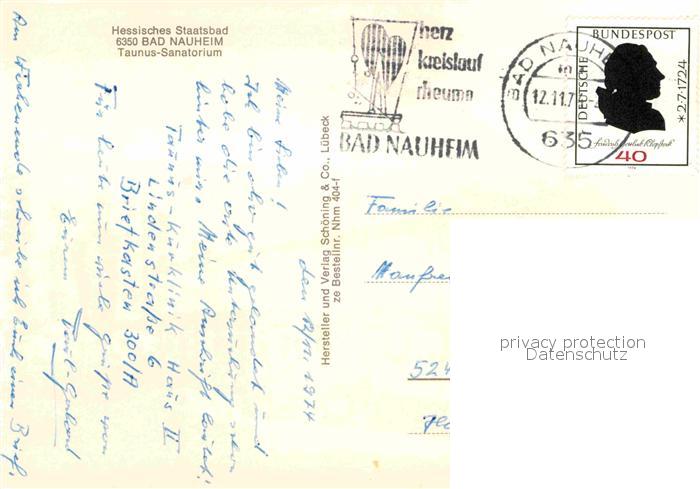 Hessisches Staatsbad
6350 BAD NAUHEIM
Taunus-Sanatorium
herz
kreislauf
rheuma
BAD NAUHEIM
BAD NAUHEIM
12.11.7
635
DEUTSCHE BUNDESPOST
* 2·7·1724
Friedrich Gottlieb Klopstock
40
Hersteller und Verlag Schöning & Co., Lübeck
ze Bestellnr. Nhm 404-f
den 12/11 1974
Meine Lieben!
Ich bin also gut gelandet und
habe die erste Untersuchung schon
hinter mir. Meine Anschrift lautet:
Taunus-Kurklinik Haus II
Lindenstraße 6
Briefkasten 300/A
Für heute nun viele Grüße von
Eurem
Am Wochenende schreibe ich Euch einen Brief.
Familie
Manfre
524
privacy protection
Datenschutz